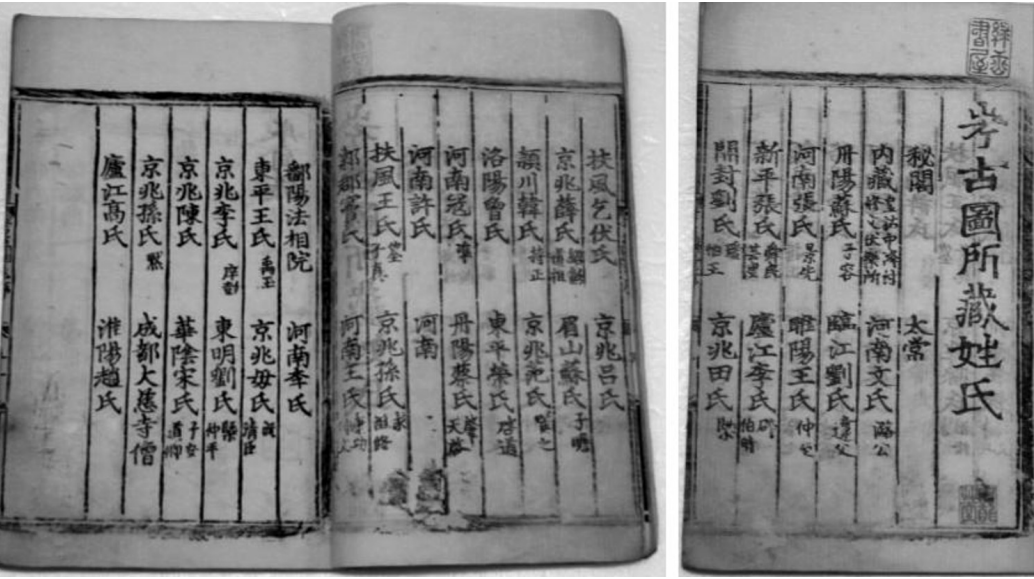 考古圖所藏姓氏
秘閣 太常
內藏 河南文氏 潞公
丹陽蘇氏 子容 臨江劉氏
河南張氏 景先 睢陽王氏 仲至
新平張氏 舜民 芸叟 廬江李氏 伯時
開封劉氏 瑗 伯玉 京兆田氏 槩
扶風乞伏氏 京兆呂氏
京兆薛氏 紹彭 道祖 眉山蘇氏 子瞻
潁川韓氏 持正 京兆范氏 巽之
洛陽曾氏 東平榮氏 啓道
河南寇氏 準 丹陽蔡氏 肇 天啓
河南許氏 河南
扶風王氏 子真 京兆孫氏 求 祖修
河南王氏
鄱陽法相院 河南李氏
東平王氏 禹玉 京兆毋氏 清臣
京兆李氏 東明劉氏 槩 仲平
京兆陳氏 華陰宋氏 子安 道卿
京兆孫氏 默 成都大慈寺僧
廬江高氏 淮陽趙氏